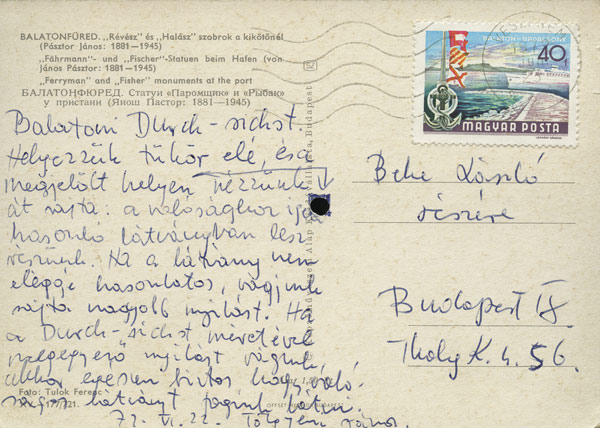 BALATONFÜRED. „Révész" és „Halász" szobrok a kikötőnél
(Pásztor János: 1881—1945)
„Fährmann"- und „Fischer"-Statuen beim Hafen (von
János Pásztor: 1881—1945)
"Ferryman" and "Fisher" monuments at the port
БАЛАТОНФЮРЕД. Статуи «Паромщик» и «Рыбак»
у пристани (Янош Пастор: 1881—1945)
Balatoni Durch-sichst.
Helyezzük tükör elé, és a
megjelölt helyen nézzünk
át rajta: a valósághoz igen
hasonló látványban lesz
részünk. Ha a látvány nem
eléggé hasonlatos, vágjunk
rajta nagyobb nyílást. Ha
a Durch-sichst méretével
megegyező nyílást vágunk,
akkor egészen biztos hogy való-
ságos látványt fogunk látni.
72. VI. 22.
János.
Foto: Tulok Ferenc
BALATON - BADACSONY
40
MAGYAR POSTA
Beke László
részére
Budapest IX.
Thaly K. u. 56.